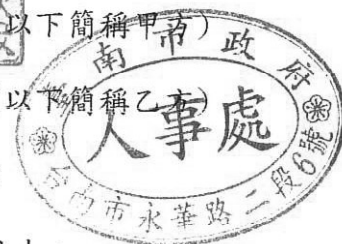 以下簡稱甲方)
以下簡稱乙方)
南市政府
人事處
台南市永華路二段6號